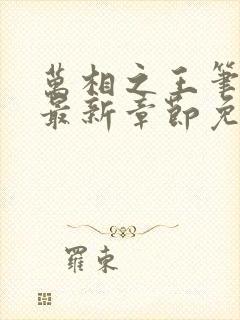 萬相之王筆
最新章節免
羅東